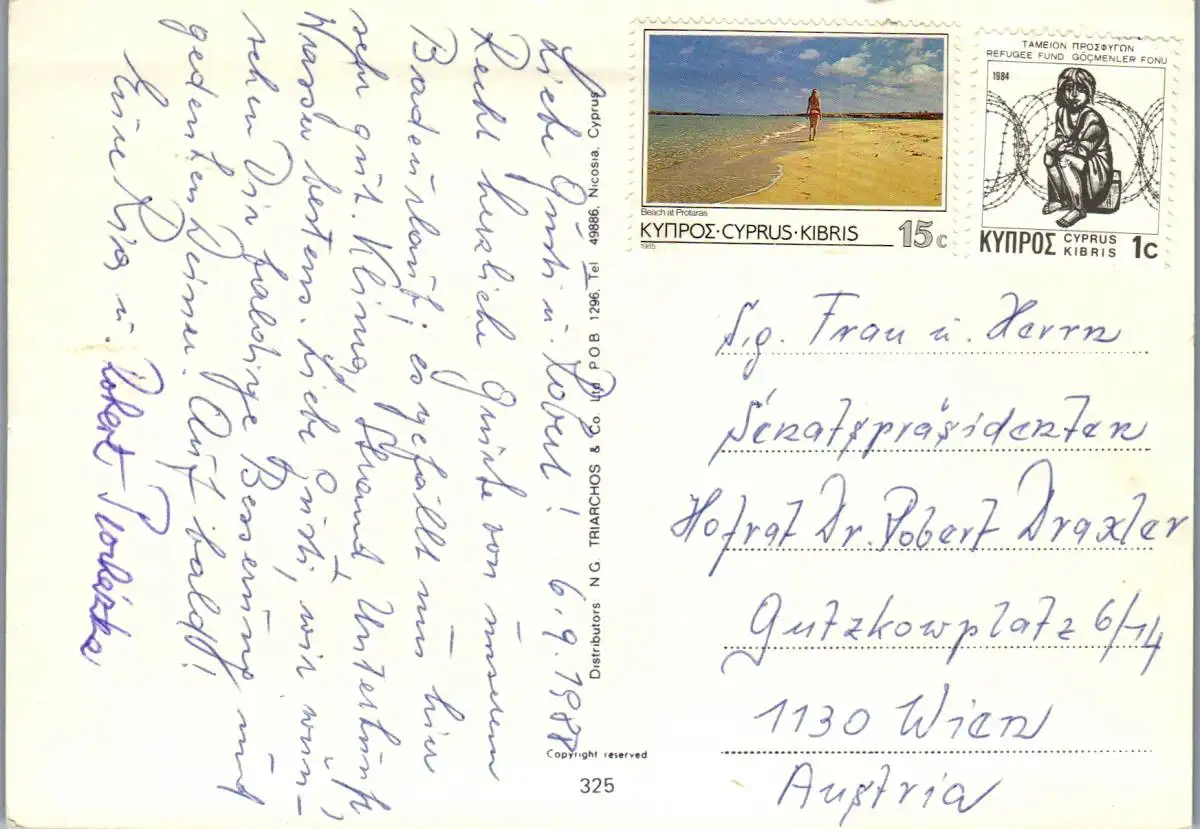 Liebe Gusti u. Robert! 6.9.1988
Recht herzliche Grüße von unserem
Badeurlaub; es gefällt uns hier
sehr gut. Klima, Strand, Unterkunft,
Wasser bestens. Liebe Gusti, wir wün-
schen Dir baldige Besserung und
gedenken Deiner. Auf bald!
Eure Ria u. Robert
Distributors N.G. TRIARCHOS & Co. Ltd P O B 1296, Tel 49886, Nicosia, Cyprus
Copyright reserved
325
Beach at Protaras
ΚΥΠΡΟΣ·CYPRUS·KIBRIS 15c
1985
ΤΑΜΕΙΟΝ ΠΡΟΣΦΥΓΩΝ
REFUGEE FUND GÖÇMENLER FONU
1984
ΚΥΠΡΟΣ CYPRUS KIBRIS 1c
S.g. Frau u. Herrn
Senatspräsidenten
Hofrat Dr. Robert Draxler
Gutzkowplatz 6/14
1130 Wien
Austria